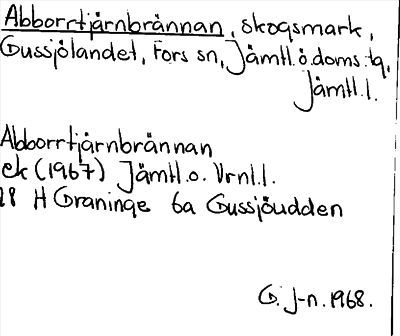 Abborrtjärnbrännan, skogsmark,
Gussjölandet, Fors sn, Jämtl.ö.doms:tg,
Jämtl.l.
Abborrtjärnbrännan
ek (1967) Jämtl.o. Vrnl.l.
18 H Graninge 6a Gussjöudden
G. J-n. 1968.